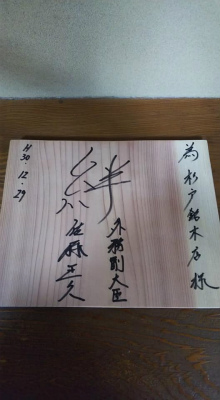 為 杉戸銘木店 様
絆
外務副大臣
佐藤正久
H30.12.29